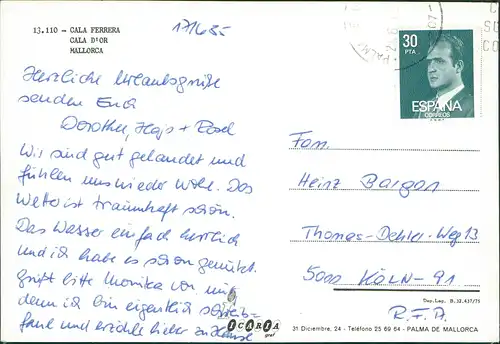 13.110 – CALA FERRERA
CALA D'OR
MALLORCA
17/6 85
Herzliche Urlaubsgrüße
senden Euch
Dorothee, Hajo + Rosel
Wir sind gut gelandet und
fühlen uns wieder wohl. Das
Wetter ist traumhaft schön.
Das Wasser einfach herrlich
und ich habe es schon genutzt.
Grüßt bitte Monika von mir
denn ich bin eigentlich schreib-
faul und erzähle lieber zuhause
30
PTA
ESPAÑA
CORREOS
Fam.
Heinz Bargon
Thomas-Dehler-Weg 13
5000 KÖLN-91
R.F.A.
Dep. Leg. B. 32.437/75
ICARIA
graf
31 Diciembre, 24 - Teléfono 25 69 64 - PALMA DE MALLORCA